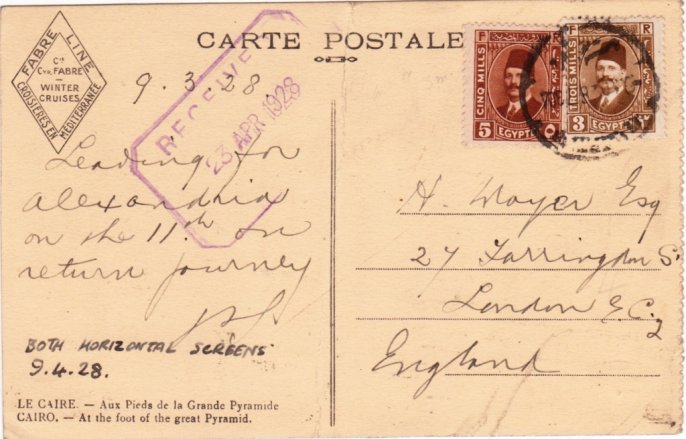 FABRE LINE
Cie
CYP. FABRE
WINTER
CRUISES
CROISIÈRES EN MÉDITERRANÉE
CARTE POSTALE
9.3.28
RECEIVED
23 APR 1928
Leading for
Alexandria
on the 11.th on
return journey
BOTH HORIZONTAL SCREENS
9.4.28.
LE CAIRE. — Aux Pieds de la Grande Pyramide
CAIRO. — At the foot of the great Pyramid.
F R
CINQ MILLS
5 EGYPTE ٥
F R
TROIS MILLS
3 EGYPTE ٣
H. Mayer Esq
27 Farringdon S.
London E.C.2
England